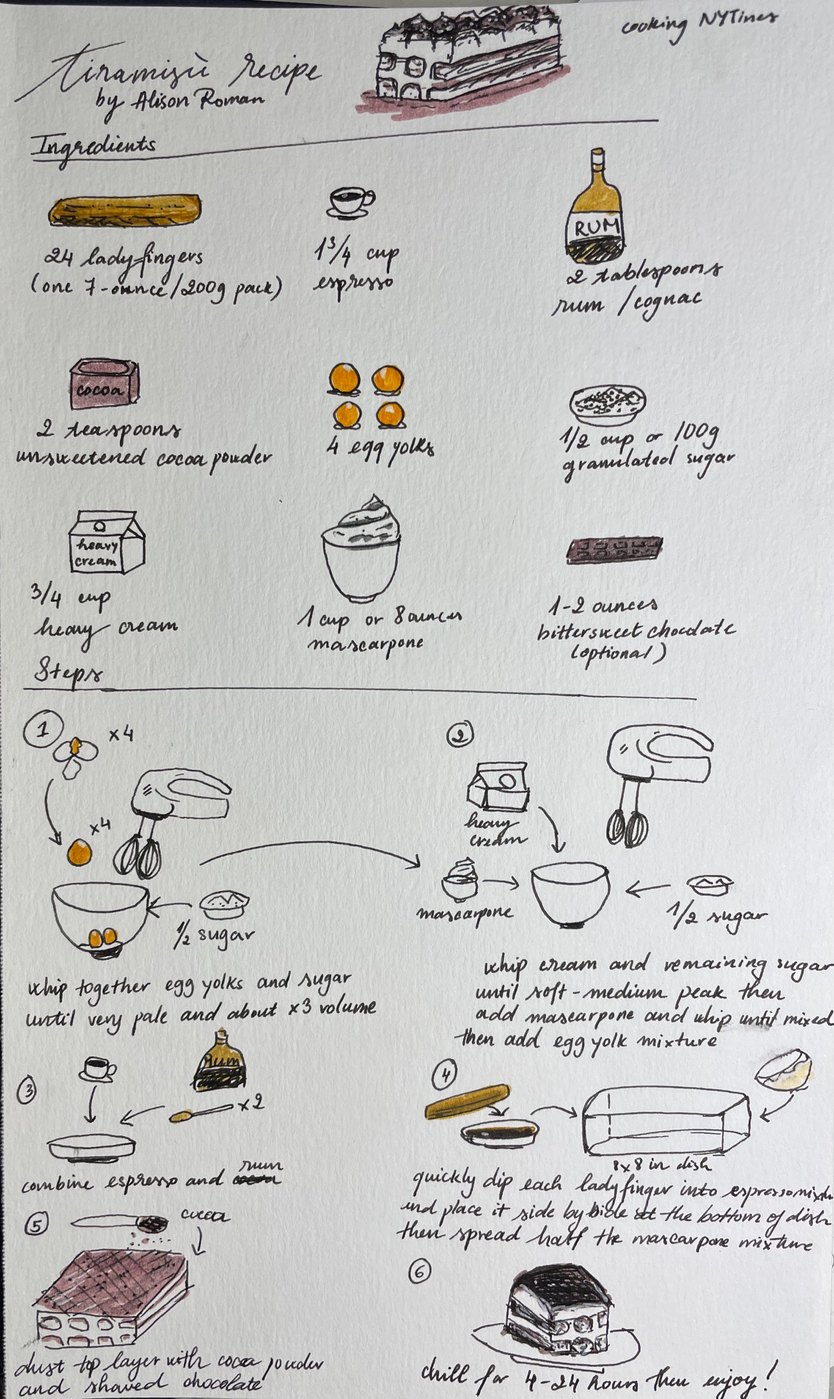 cooking NYTimes
tiramisù recipe
by Alison Roman
Ingredients
24 ladyfingers
(one 7-ounce/200g pack)
1 3/4 cup
espresso
RUM
2 tablespoons
rum / cognac
cocoa
2 teaspoons
unsweetened cocoa powder
4 egg yolks
1/2 cup or 100g
granulated sugar
heavy
cream
3/4 cup
heavy cream
1 cup or 8 ounces
mascarpone
1-2 ounces
bittersweet chocolate
(optional)
Steps
1
x4
x4
1/2 sugar
whip together egg yolks and sugar
until very pale and about x3 volume
2
heavy
cream
mascarpone
1/2 sugar
whip cream and remaining sugar
until soft-medium peak then
add mascarpone and whip until mixed
then add egg yolk mixture
3
Rum
x2
rum
combine espresso and cocoa
4
8x8 in dish
quickly dip each ladyfinger into espresso mixture
and place it side by side at the bottom of dish
then spread half the mascarpone mixture
5
cocoa
dust top layer with cocoa powder
and shaved chocolate
6
chill for 4-24 hours then enjoy!